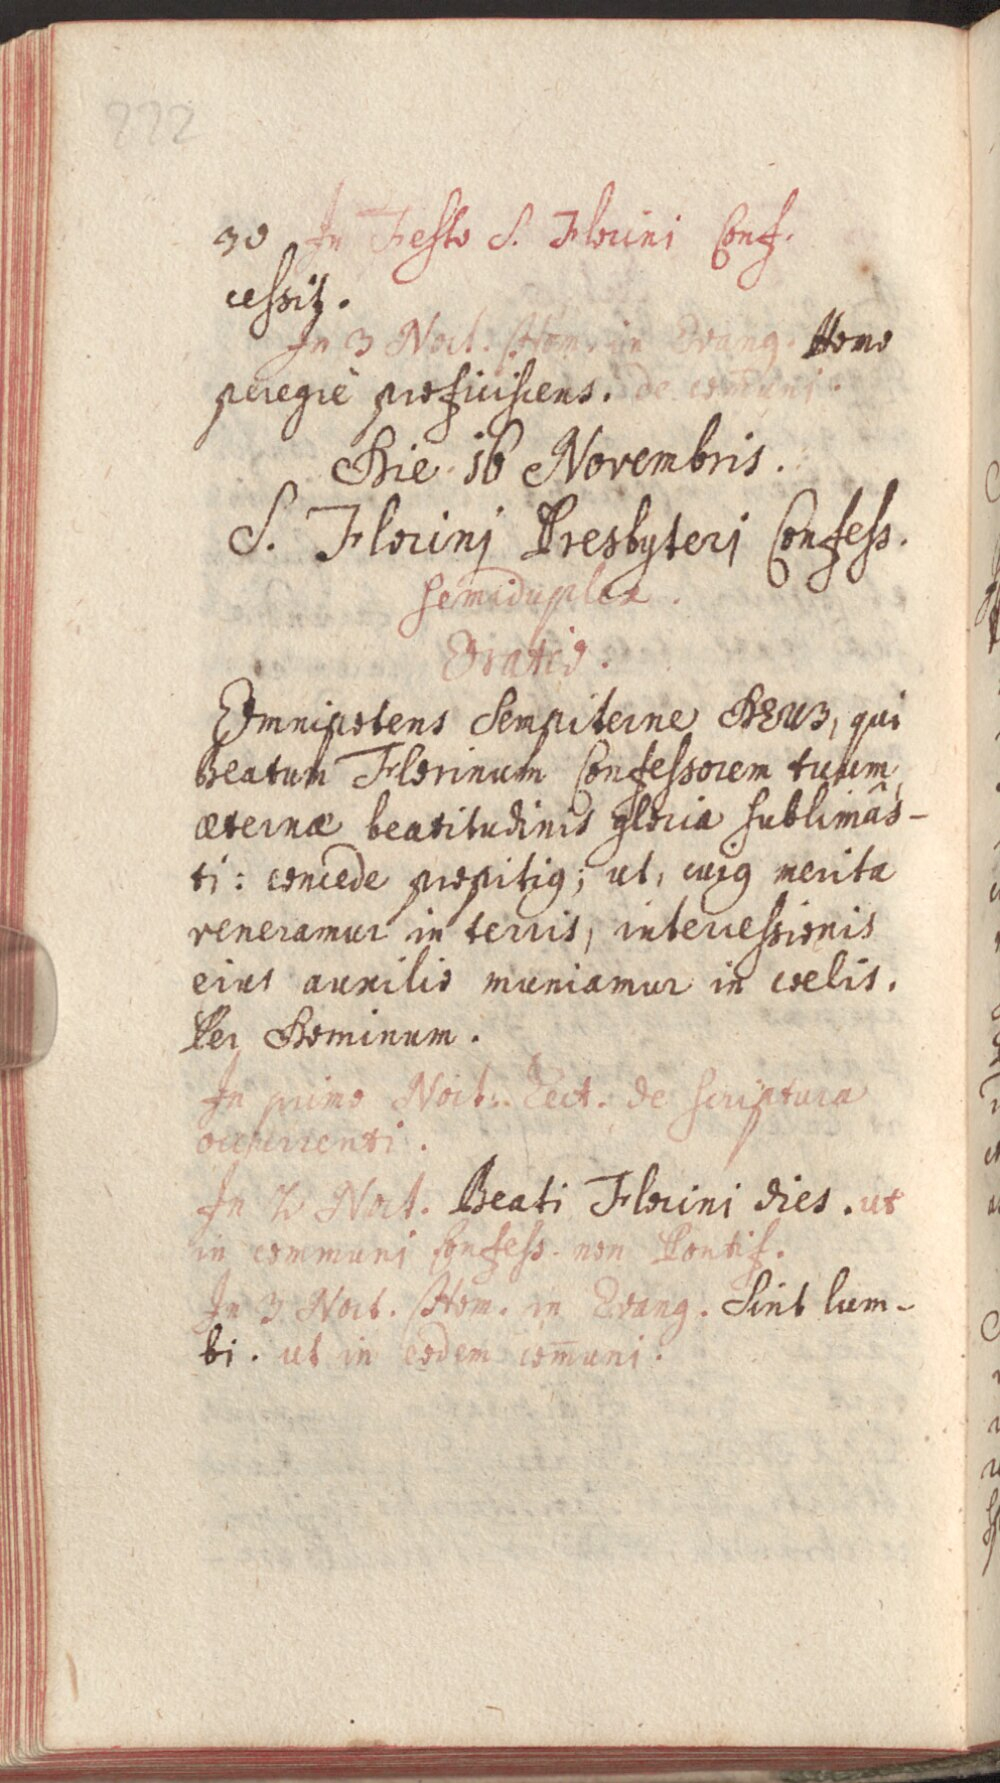 222
30 In Festo S. Florini Conf.
cessit.
In 3 Noct. Hom. in Evang. Homo
peregrè proficiscens. de com̄uni.
Die 16 Novembris.
S. Florinj Presbyterj Confess.
Semiduplex.
Oratio.
Omnipotens Sempiterne DEUS, qui
Beatum Florinum Confessorem tuum,
æternæ beatitudinis gloria sublimâs-
ti: concede propitiꝰ; ut, cuiꝰ merita
veneramur in terris, intercessionis
eius auxilio muniamur in coelis.
Per Dominum.
In primo Noct. Lect. de scriptura
occurrenti.
In 2 Noct. Beati Florini dies. ut
in communi Confess. non Pontif.
In 3 Noct. Hom. in Evang. Sint lum-
bi. ut in eodem com̄uni.